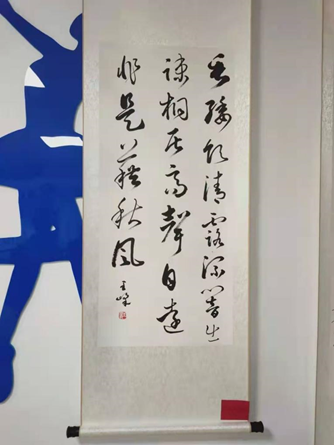 垂緌飲清露流響出
疎桐居高聲自遠
非是藉秋風